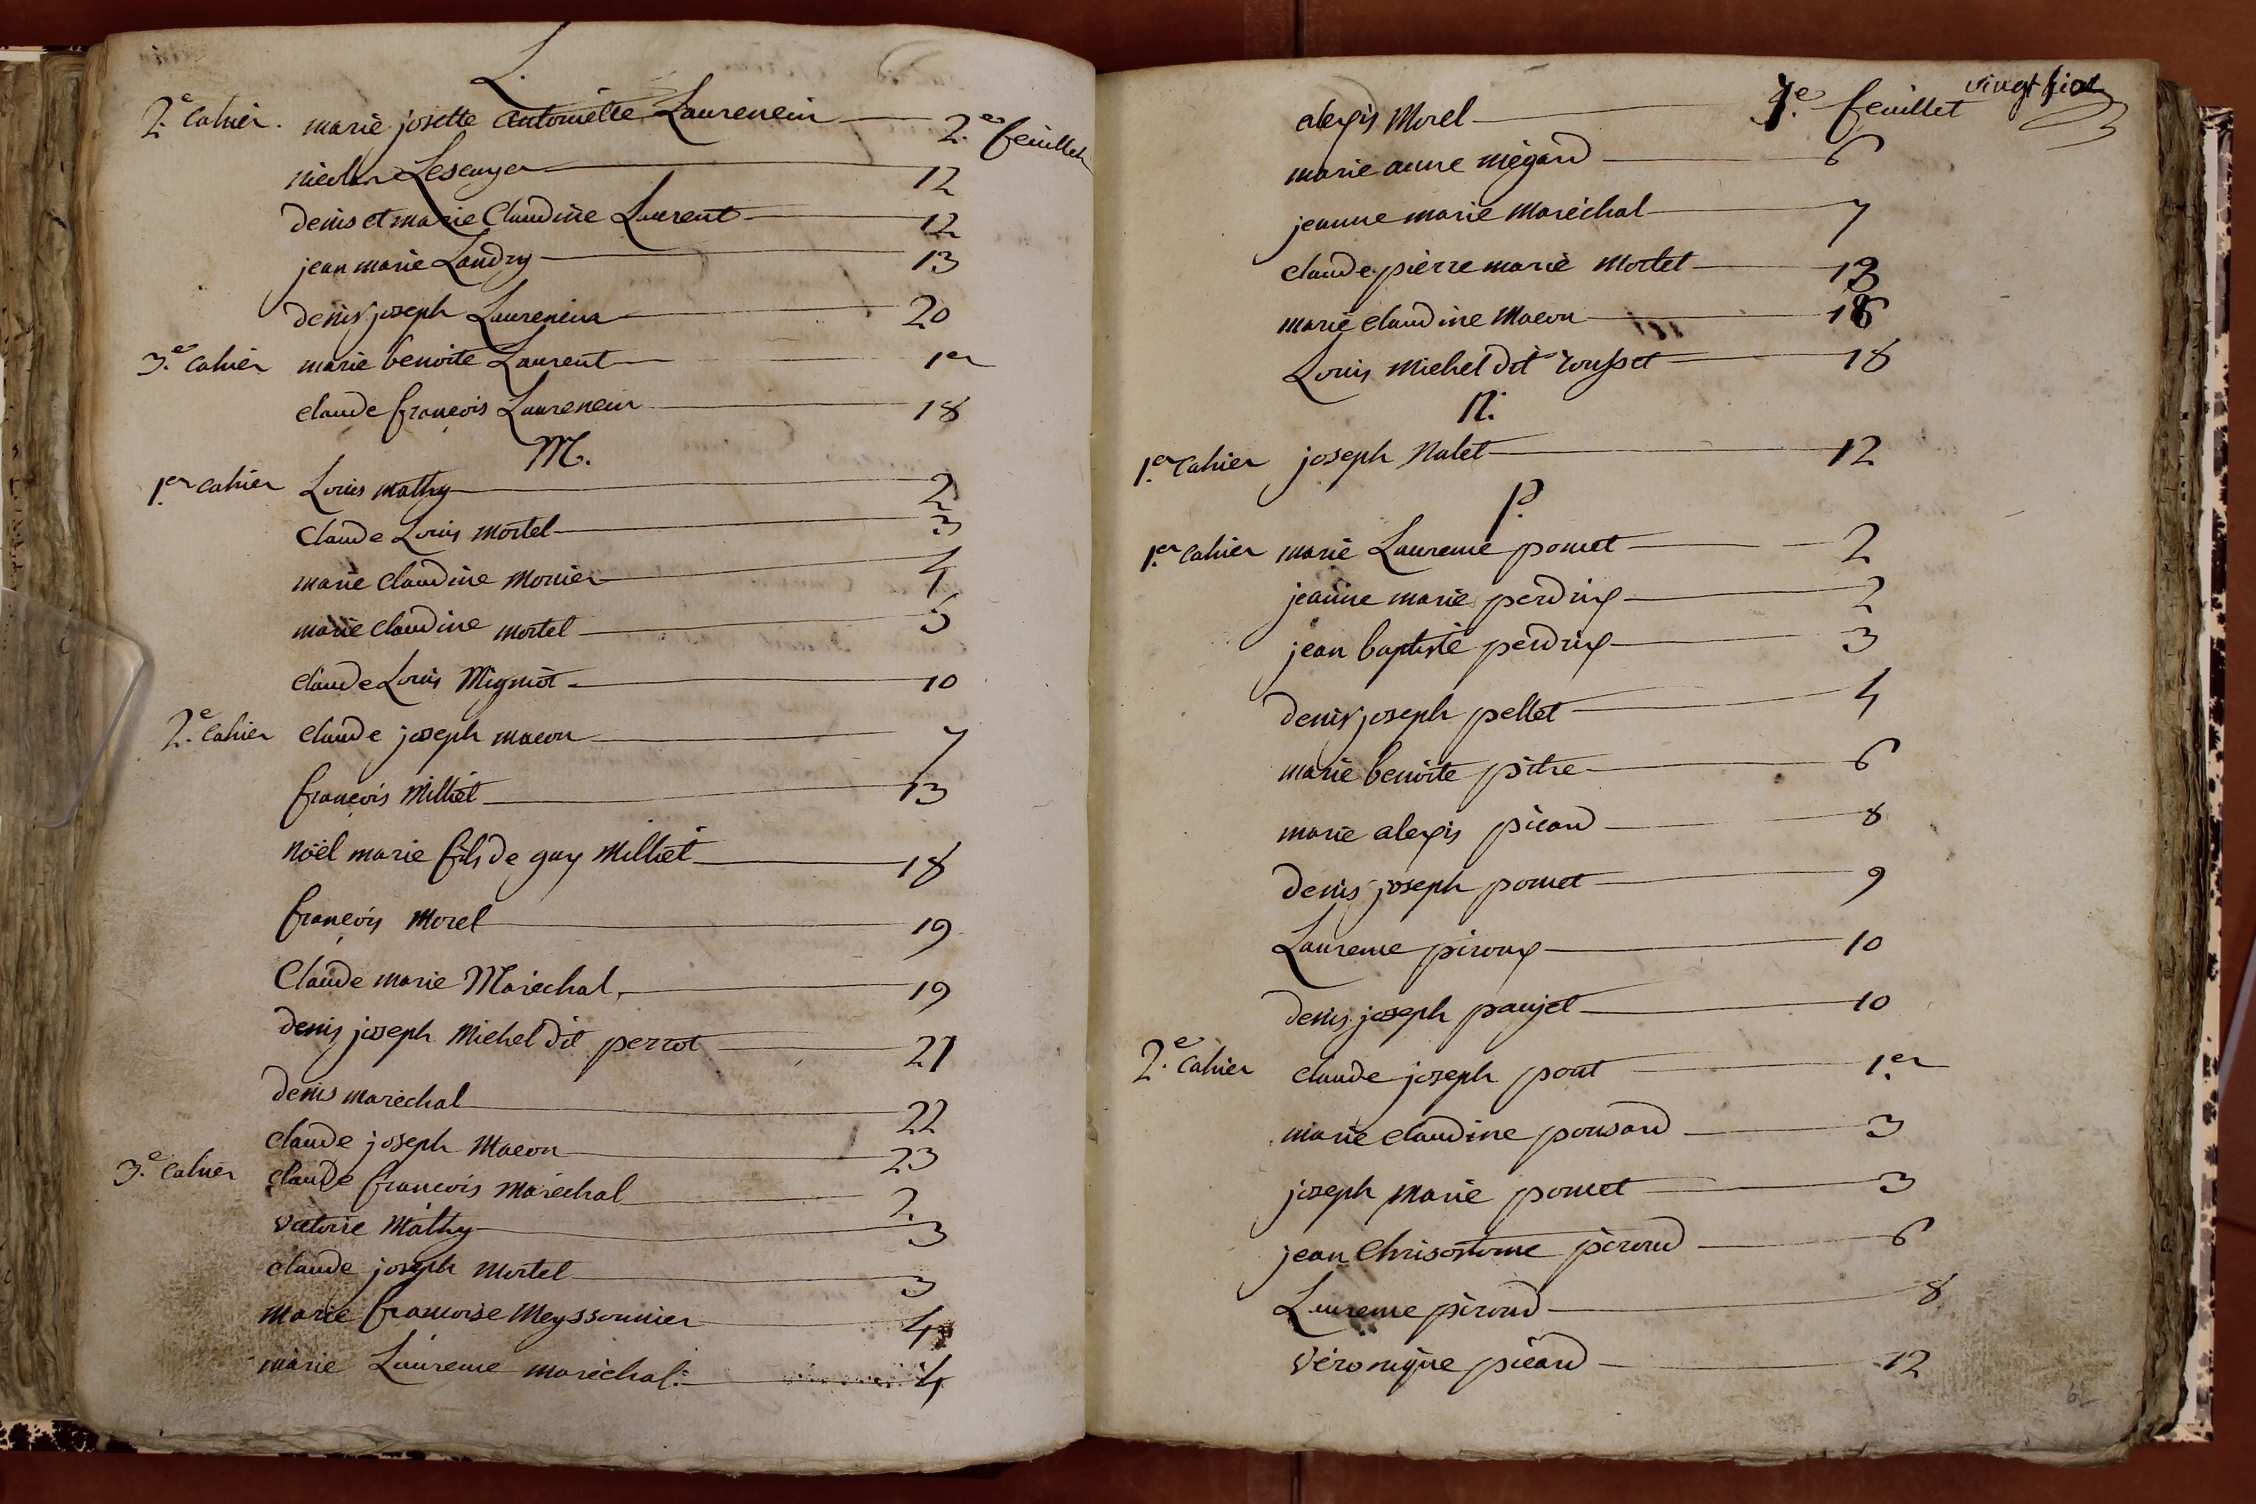 L.
2.e Cahier. marie josette antoinette Laurencin 2.e feuillet
nicolas Lescuyer 12
denis et marie Claudine Laurent 12
jean marie Landry 13
denis joseph Laurencin 20
3.e Cahier marie benoite Laurent 1er
claude françois Laurencin 18
M.
1.er cahier Louis mathy 2
Claude Louis mortel 3
marie Claudine monier 4
marie claudine mortel 5
claude Louis Mignot 10
2.e Cahier claude joseph macon 7
françois Milliet 13
Noël marie fils de guy Milliet 18
françois Morel 19
Claude marie Maréchal 19
denis joseph Michel dit perrot 21
denis marechal 22
claude joseph Macon 23
3.e Cahier claude francois maréchal 2
victoire Mathy 3
claude joseph mortel 3
marie francoise Meyssonnier 4
marie Laurence maréchal 4
vingt six
alexis Morel feuillet
marie anne mégard 6
jeanne marie maréchal 7
claude pierre marie mortel 13
marie claudine Macon 16
Louis Michel dit rousset 18
N.
1.er Cahier joseph Nalet 12
P.
1.er Cahier marie Laurence pomet 2
jeanne marie perdrix 2
jean baptiste perdrix 3
denis joseph pellet 4
marie benoite pitre 6
marie alexis picard 8
denis joseph pomet 9
Laurence piroux 10
denis joseph paujet 10
2.e Cahier claude joseph pont 1.er
marie claudine ponsard 3
joseph marie pomet 3
jean Chrisostome piroud 6
Laurence piroud 8
véronique picard 12